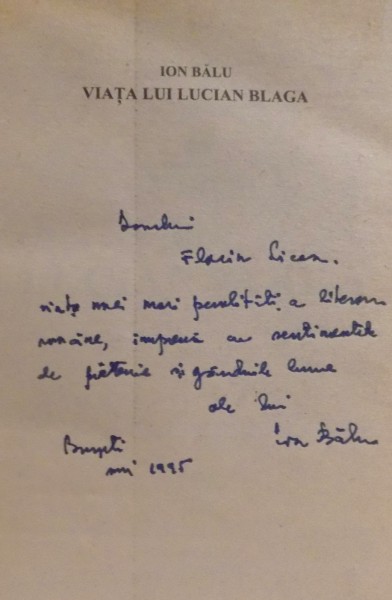 ION BĂLU
VIAȚA LUI LUCIAN BLAGA
Domnului
Florin
viața unei mari a
române, împreună cu sentimentele
de prietenie și gândurile bune
ale lui
Ion Bălu
mai 1995